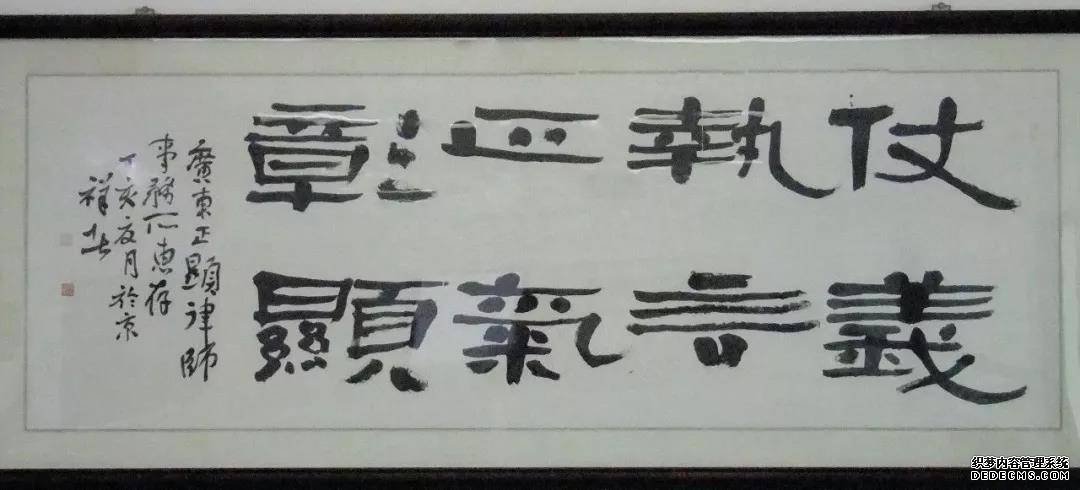 仗義
執言
正氣
彰顯
廣東正顯律師
事務所惠存
丁亥夏月於京
祥
织梦内容管理系统
DEDECMS.COM